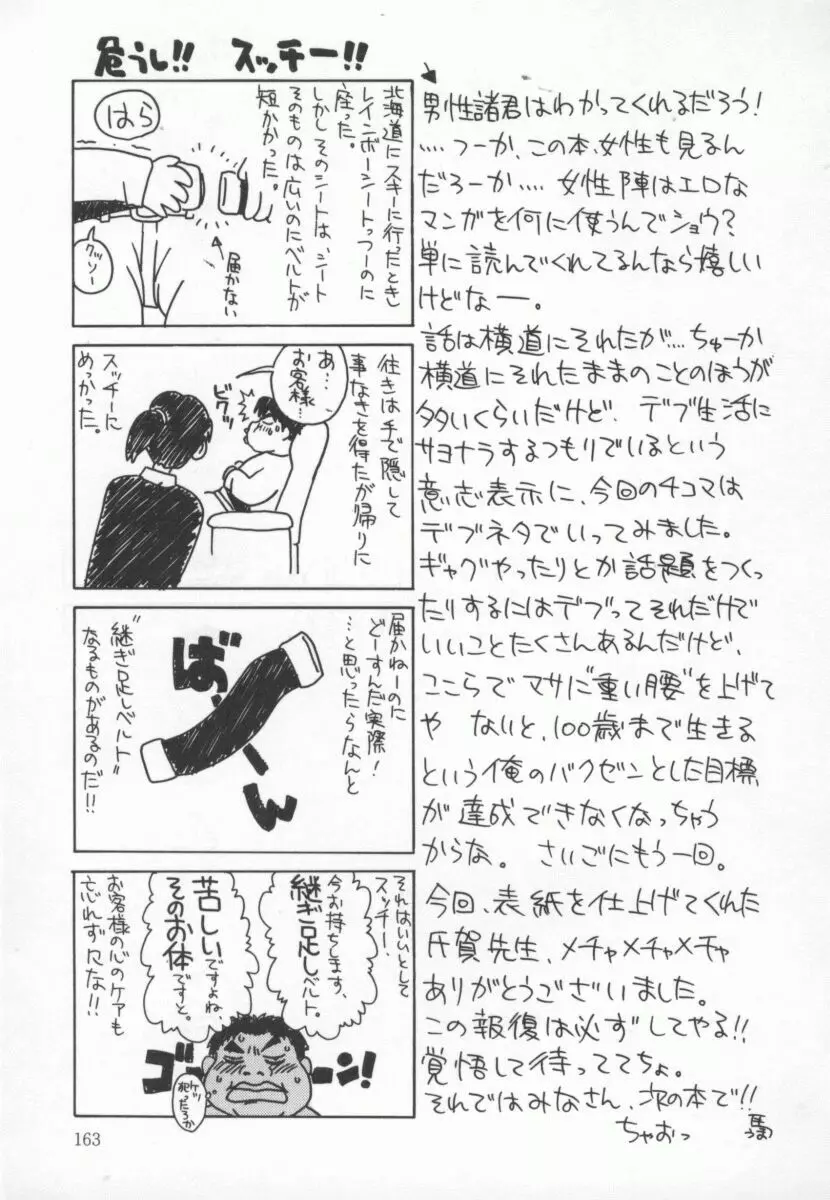 危うし!! スッチー!!
北海道にスキーに行ったとき
レインボーシートっつーのに
座った。
しかしそのシートは、シート
そのものは広いのにベルトが
短かかった。
はら
届かない
クソー
往きは手で隠して
事なきを得たが帰りに
あ…
お客様…
ビクッ
スッチーに
めっかった。
届かねーのに
どーすんだ実際!
…と思ったらなんと
ばぁーん
"継ぎ足しベルト"
なるものがあるのだ!!
それはいいとして
スッチー、
今お持ちします、
継ぎ足しベルト。
苦しいですよね、
そのお体ですと。
お客様の心のケアも
忘れずにな!!
ゴーーン!
163
男性諸君はわかってくれるだろう!
‥‥つーか、この本、女性も見るん
だろーか‥‥女性陣はエロな
マンガを何に使うんでショウ?
単に読んでくれてるんなら嬉しい
けどなー。
話は横道にそれたが‥‥ちゅーか
横道にそれたままのことのほうが
多いくらいだけど、デブ生活に
サヨナラするつもりでいるという
意志表示に、今回の4コマは
デブネタでいってみました。
ギャグやったりとか話題をつくっ
たりするにはデブってそれだけで
いいことたくさんあるんだけど、
ここらでマサに"重い腰"を上げて
や ないと、100歳まで生きる
という俺のバクゼンとした目標
が達成できなくなっちゃう
からな。さいごにもう一回。
今回、表紙を仕上げてくれた
氏賀先生、メチャメチャメチャ
ありがとうございました。
この報復は必ずしてやる!!
覚悟して待っててちょ。
それではみなさん、次の本で!!
ちゃおっ